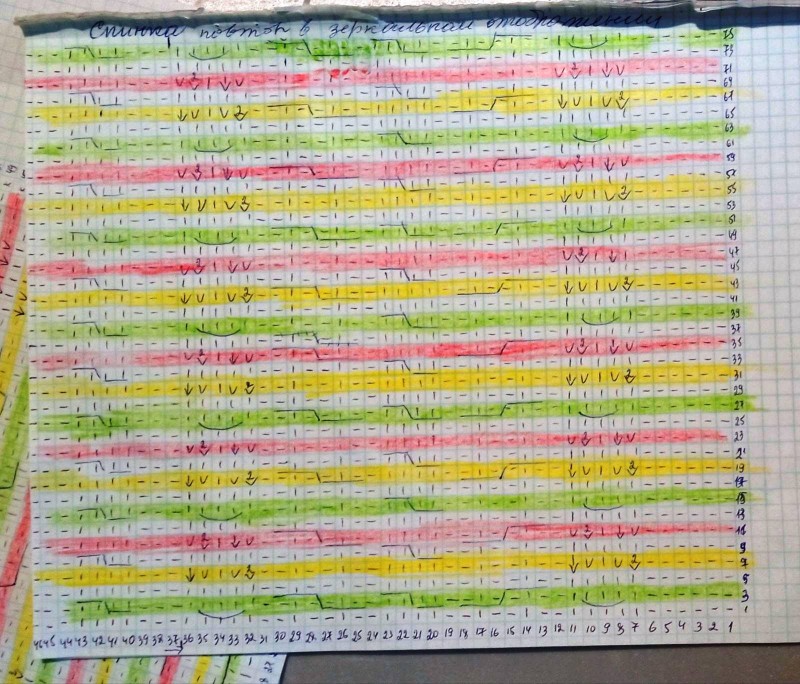 Спинка повтор в зеркальном отображении
75
73
71
69
67
65
63
61
59
57
55
53
51
49
47
45
43
41
39
37
35
33
31
29
27
25
23
21
19
17
15
13
11
9
7
5
3
1
46 45 44 43 42 41 40 39 38 37 36 35 34 33 32 31 30 29 28 27 26 25 24 23 22 21 20 19 18 17 16 15 14 13 12 11 10 9 8 7 6 5 4 3 2 1